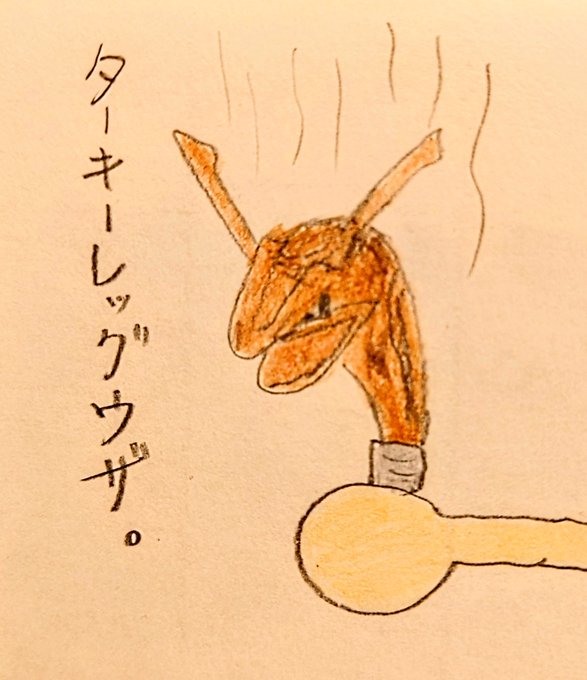 ターキーレッグウザ。